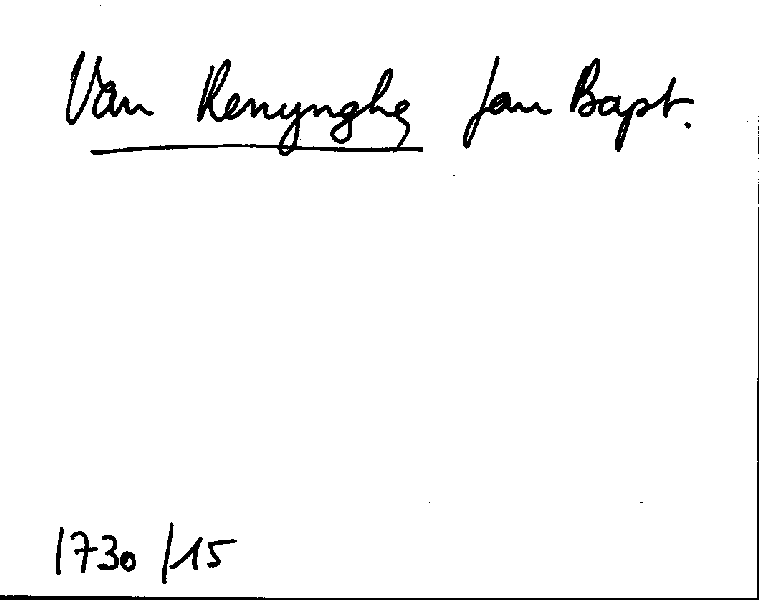 Van Renynghe Jan Bapt.
1730/15